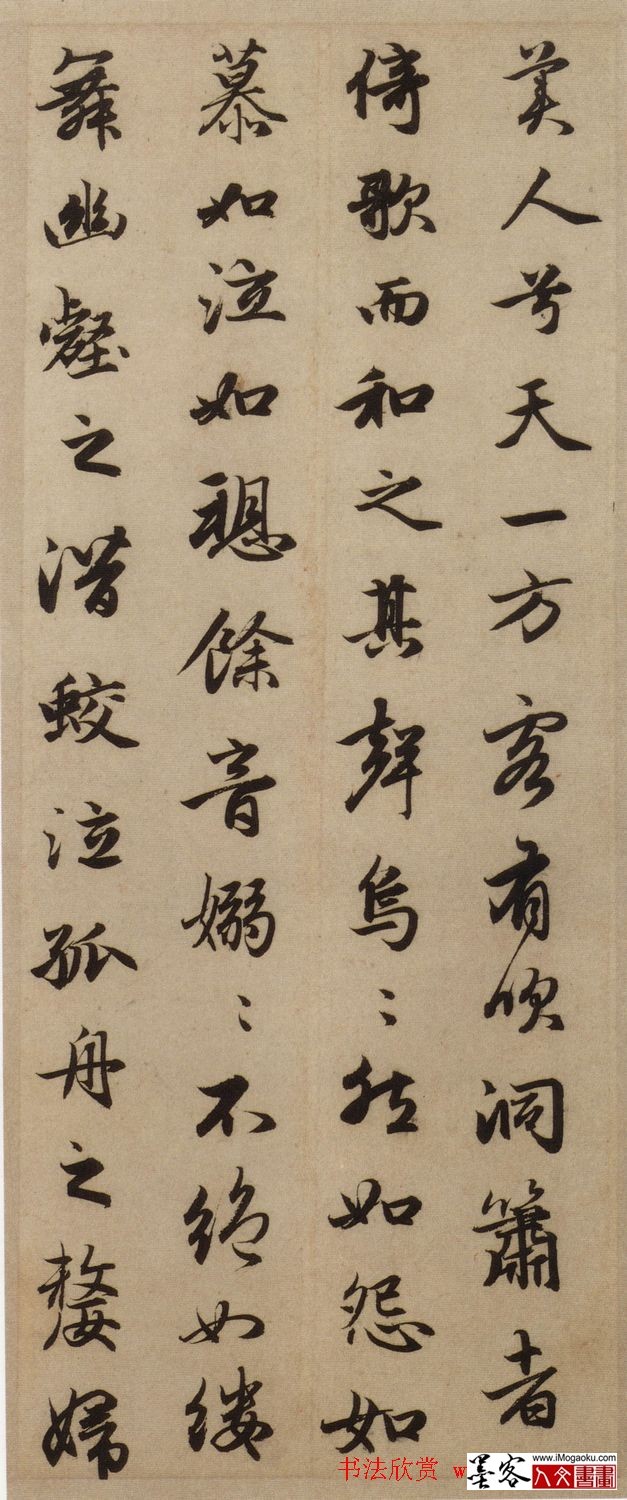 美人兮天一方客有吹洞簫者
倚歌而和之其聲烏〻然如怨如
慕如泣如愬餘音嫋〻不絕如縷
舞幽壑之潛蛟泣孤舟之嫠婦
书法欣赏 w
墨客
www.iMogaoku.com
人文書畫